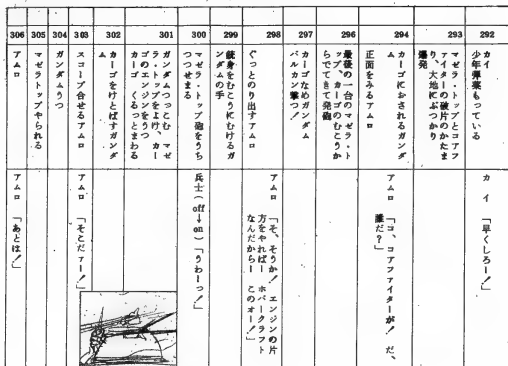 292
カイ
少年弾薬もっている
カイ 「早くしろー!」
293
マゼラ・トップとコアフ
ァイターの破片のかたま
り、大地にぶつかり
爆発
294
カーゴにおされるガンダ
ム
正面をみるアムロ
アムロ 「コ、コアファイターが! だ、
誰だ?」
296
最後の一台のマゼラ・ト
ップ、カーゴのむこうか
らでてきて発砲
297
カーゴなめガンダム
バルカン撃つ!
298
ぐっとのり出すアムロ
アムロ 「そ、そうか! エンジンの片
方をやればー ホバークラフト
なんだからー このォー!」
299
銃身をむこうにむけるガ
ンダムの手
300
マゼラ・トップ砲をうち
つつせまる
兵士(off→on)「うわーっ!」
301
ガンダムつっこむ マゼ
ラ・トップをよけ、カー
ゴのエンジンをうつ
カーゴ くるっとまわる
302
カーゴをけとばすガンダ
ム
303
スコープ合せるアムロ
アムロ 「そこだァー!」
304
ガンダムうつ
305
マゼラトップやられる
306
アムロ
アムロ 「あとは!」